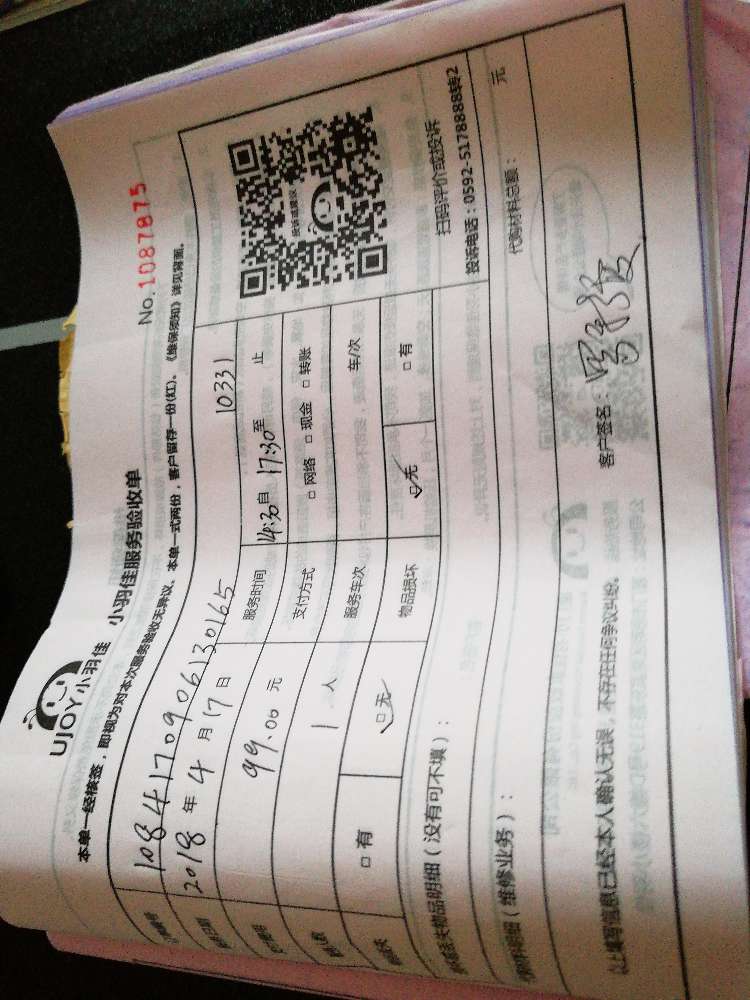 UJOY小羽佳
小羽佳服务验收单
No.1087875
本单一经核签，即视为对本次服务验收无异议、本单一式两份，客户留存一份(红)、《维保须知》详见背面。
10841709061 30165
10331
2018 年 4 月 17 日
服务时间 14:30自 17:30至 止
99.00 元
支付方式 □ 网络 □ 现金 □ 转账
1 人
服务车次 车/次
□ 有 ☑ 无
物品损坏 ☑ 无 □ 有
投诉或建议
扫码评价或投诉
投诉电话：0592-5178888转2
物品明细（没有可不填）：
明细（维修业务）：
代购材料总额： 元
以上填写信息已经本人确认无误，不存在任何争议纠纷。
客户签名：